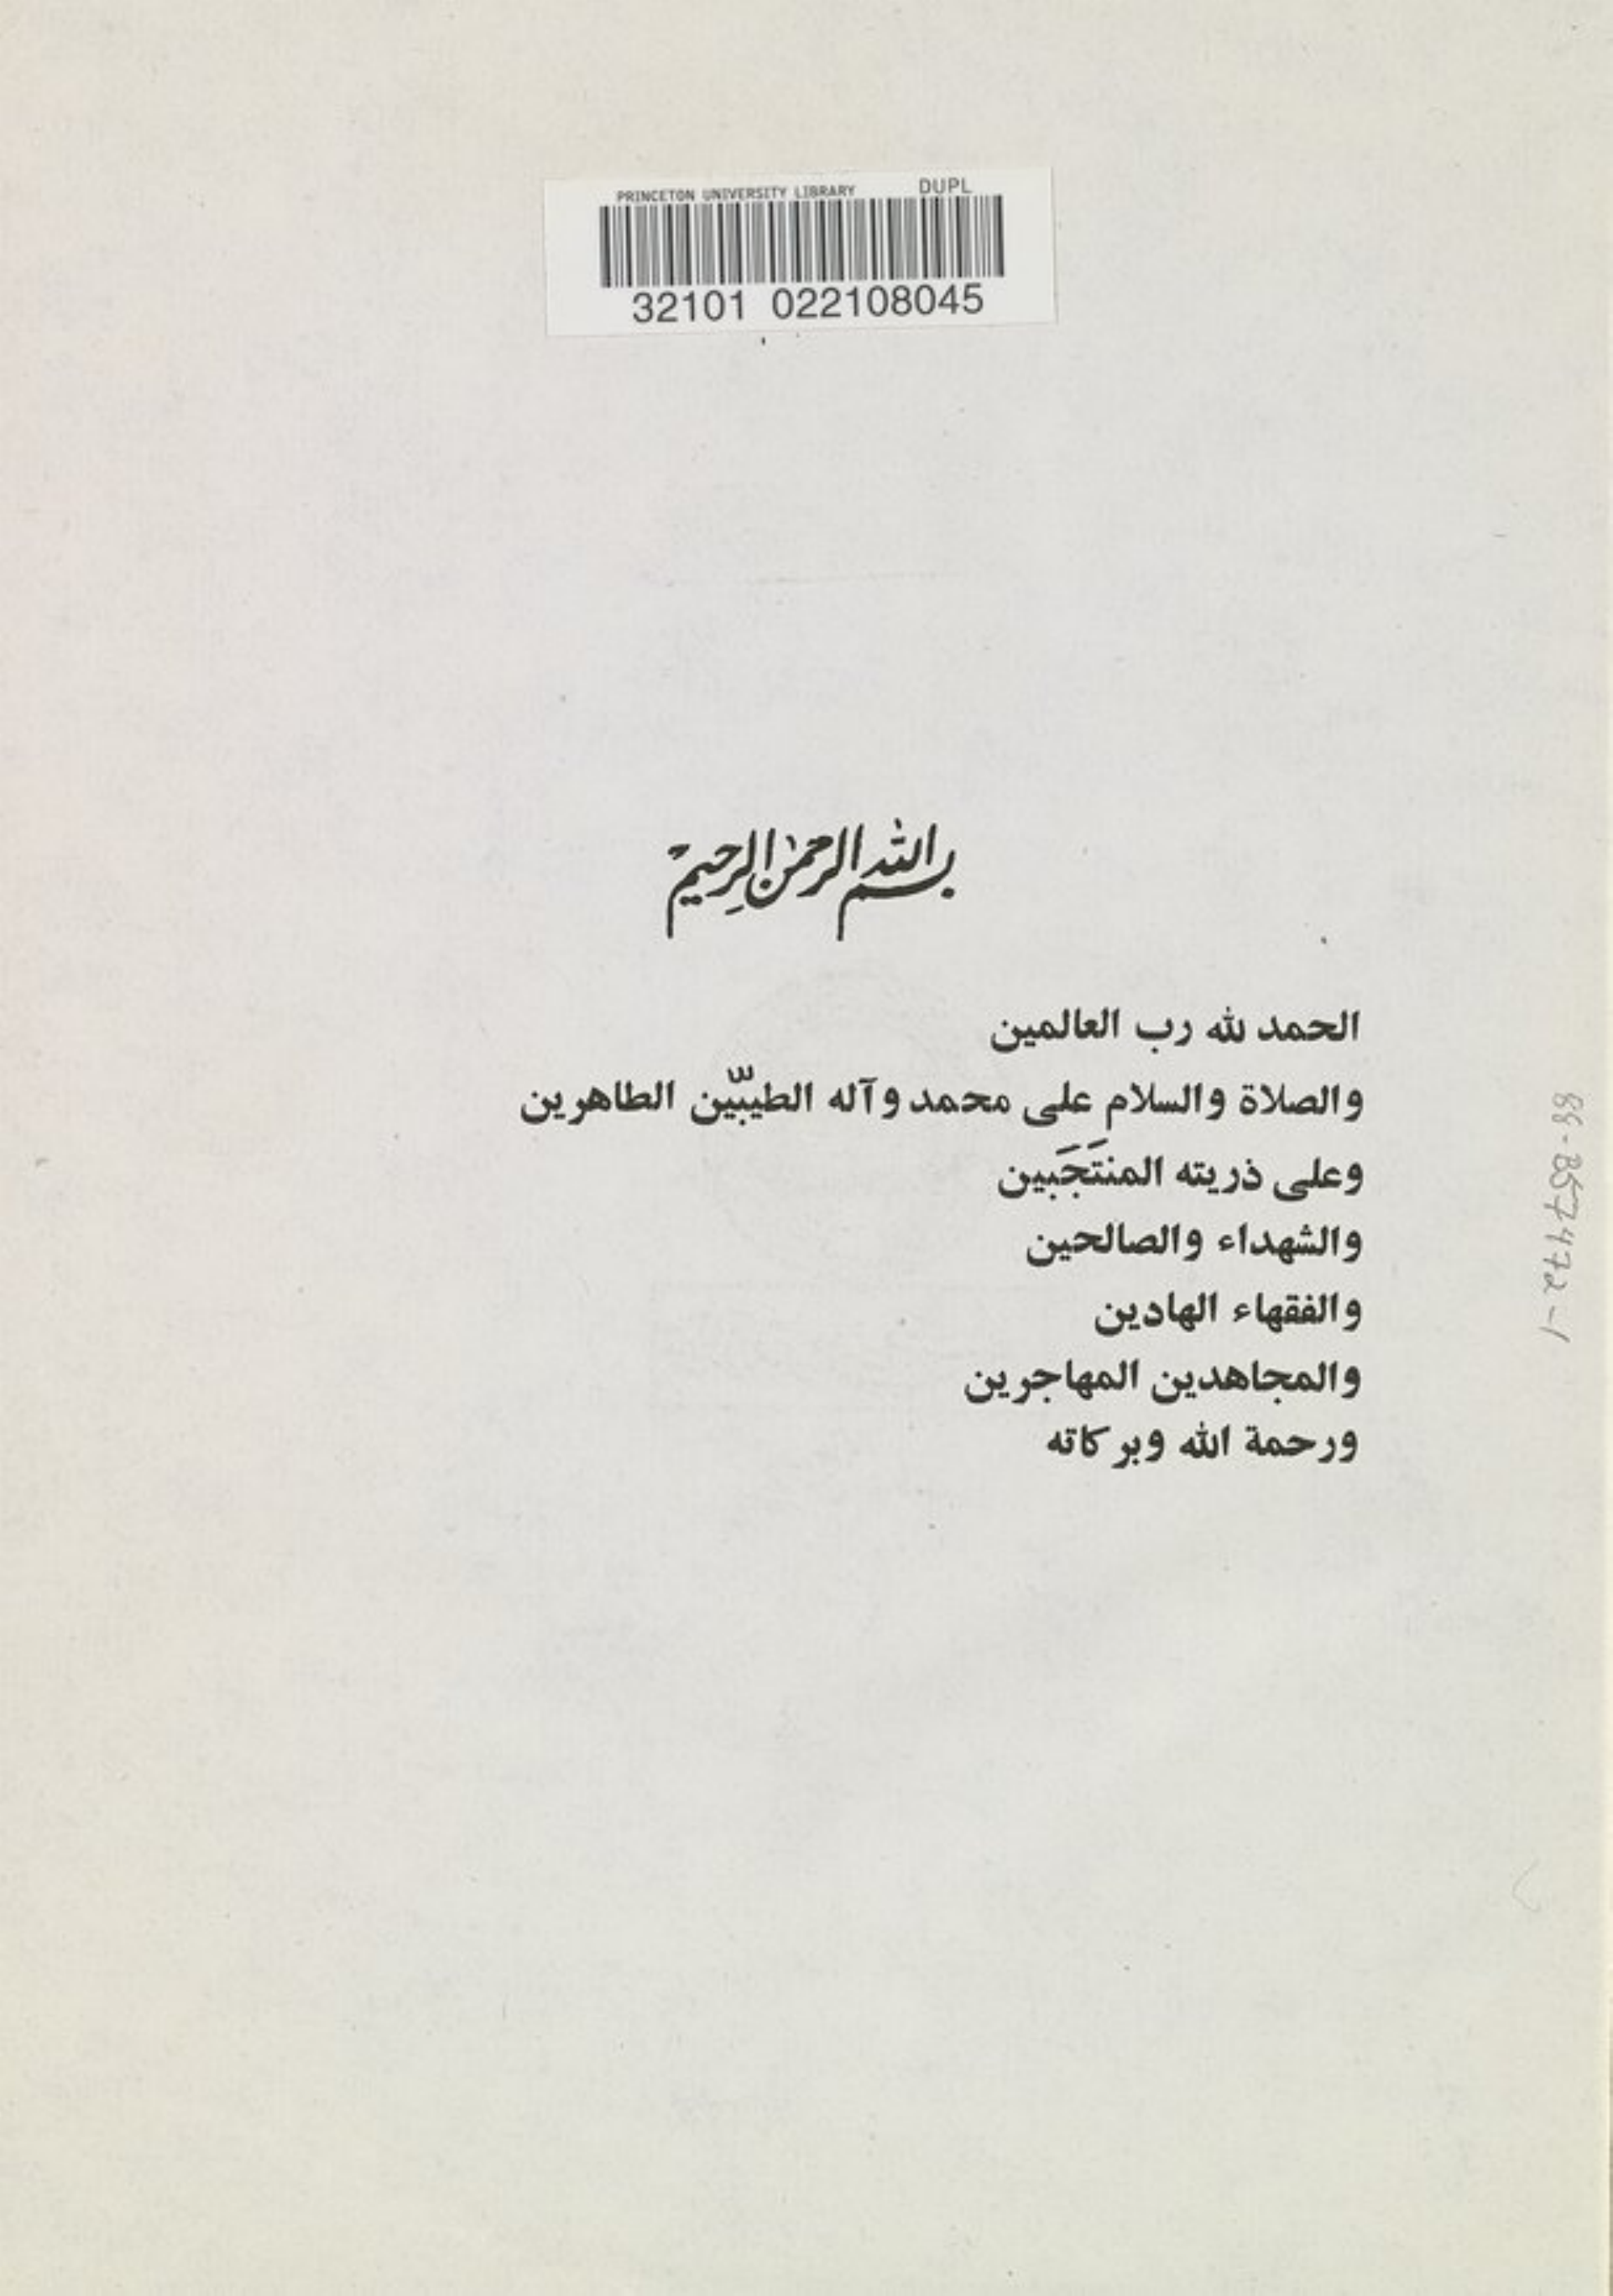 PRINCETON UNIVERSITY LIBRARY DUPL
32101 022108045
بسم الله الرحمن الرحيم
الحمد لله رب العالمين
والصلاة والسلام على محمد وآله الطيّبين الطاهرين
وعلى ذريته المنتَجَبين
والشهداء والصالحين
والفقهاء الهادين
والمجاهدين المهاجرين
ورحمة الله وبركاته